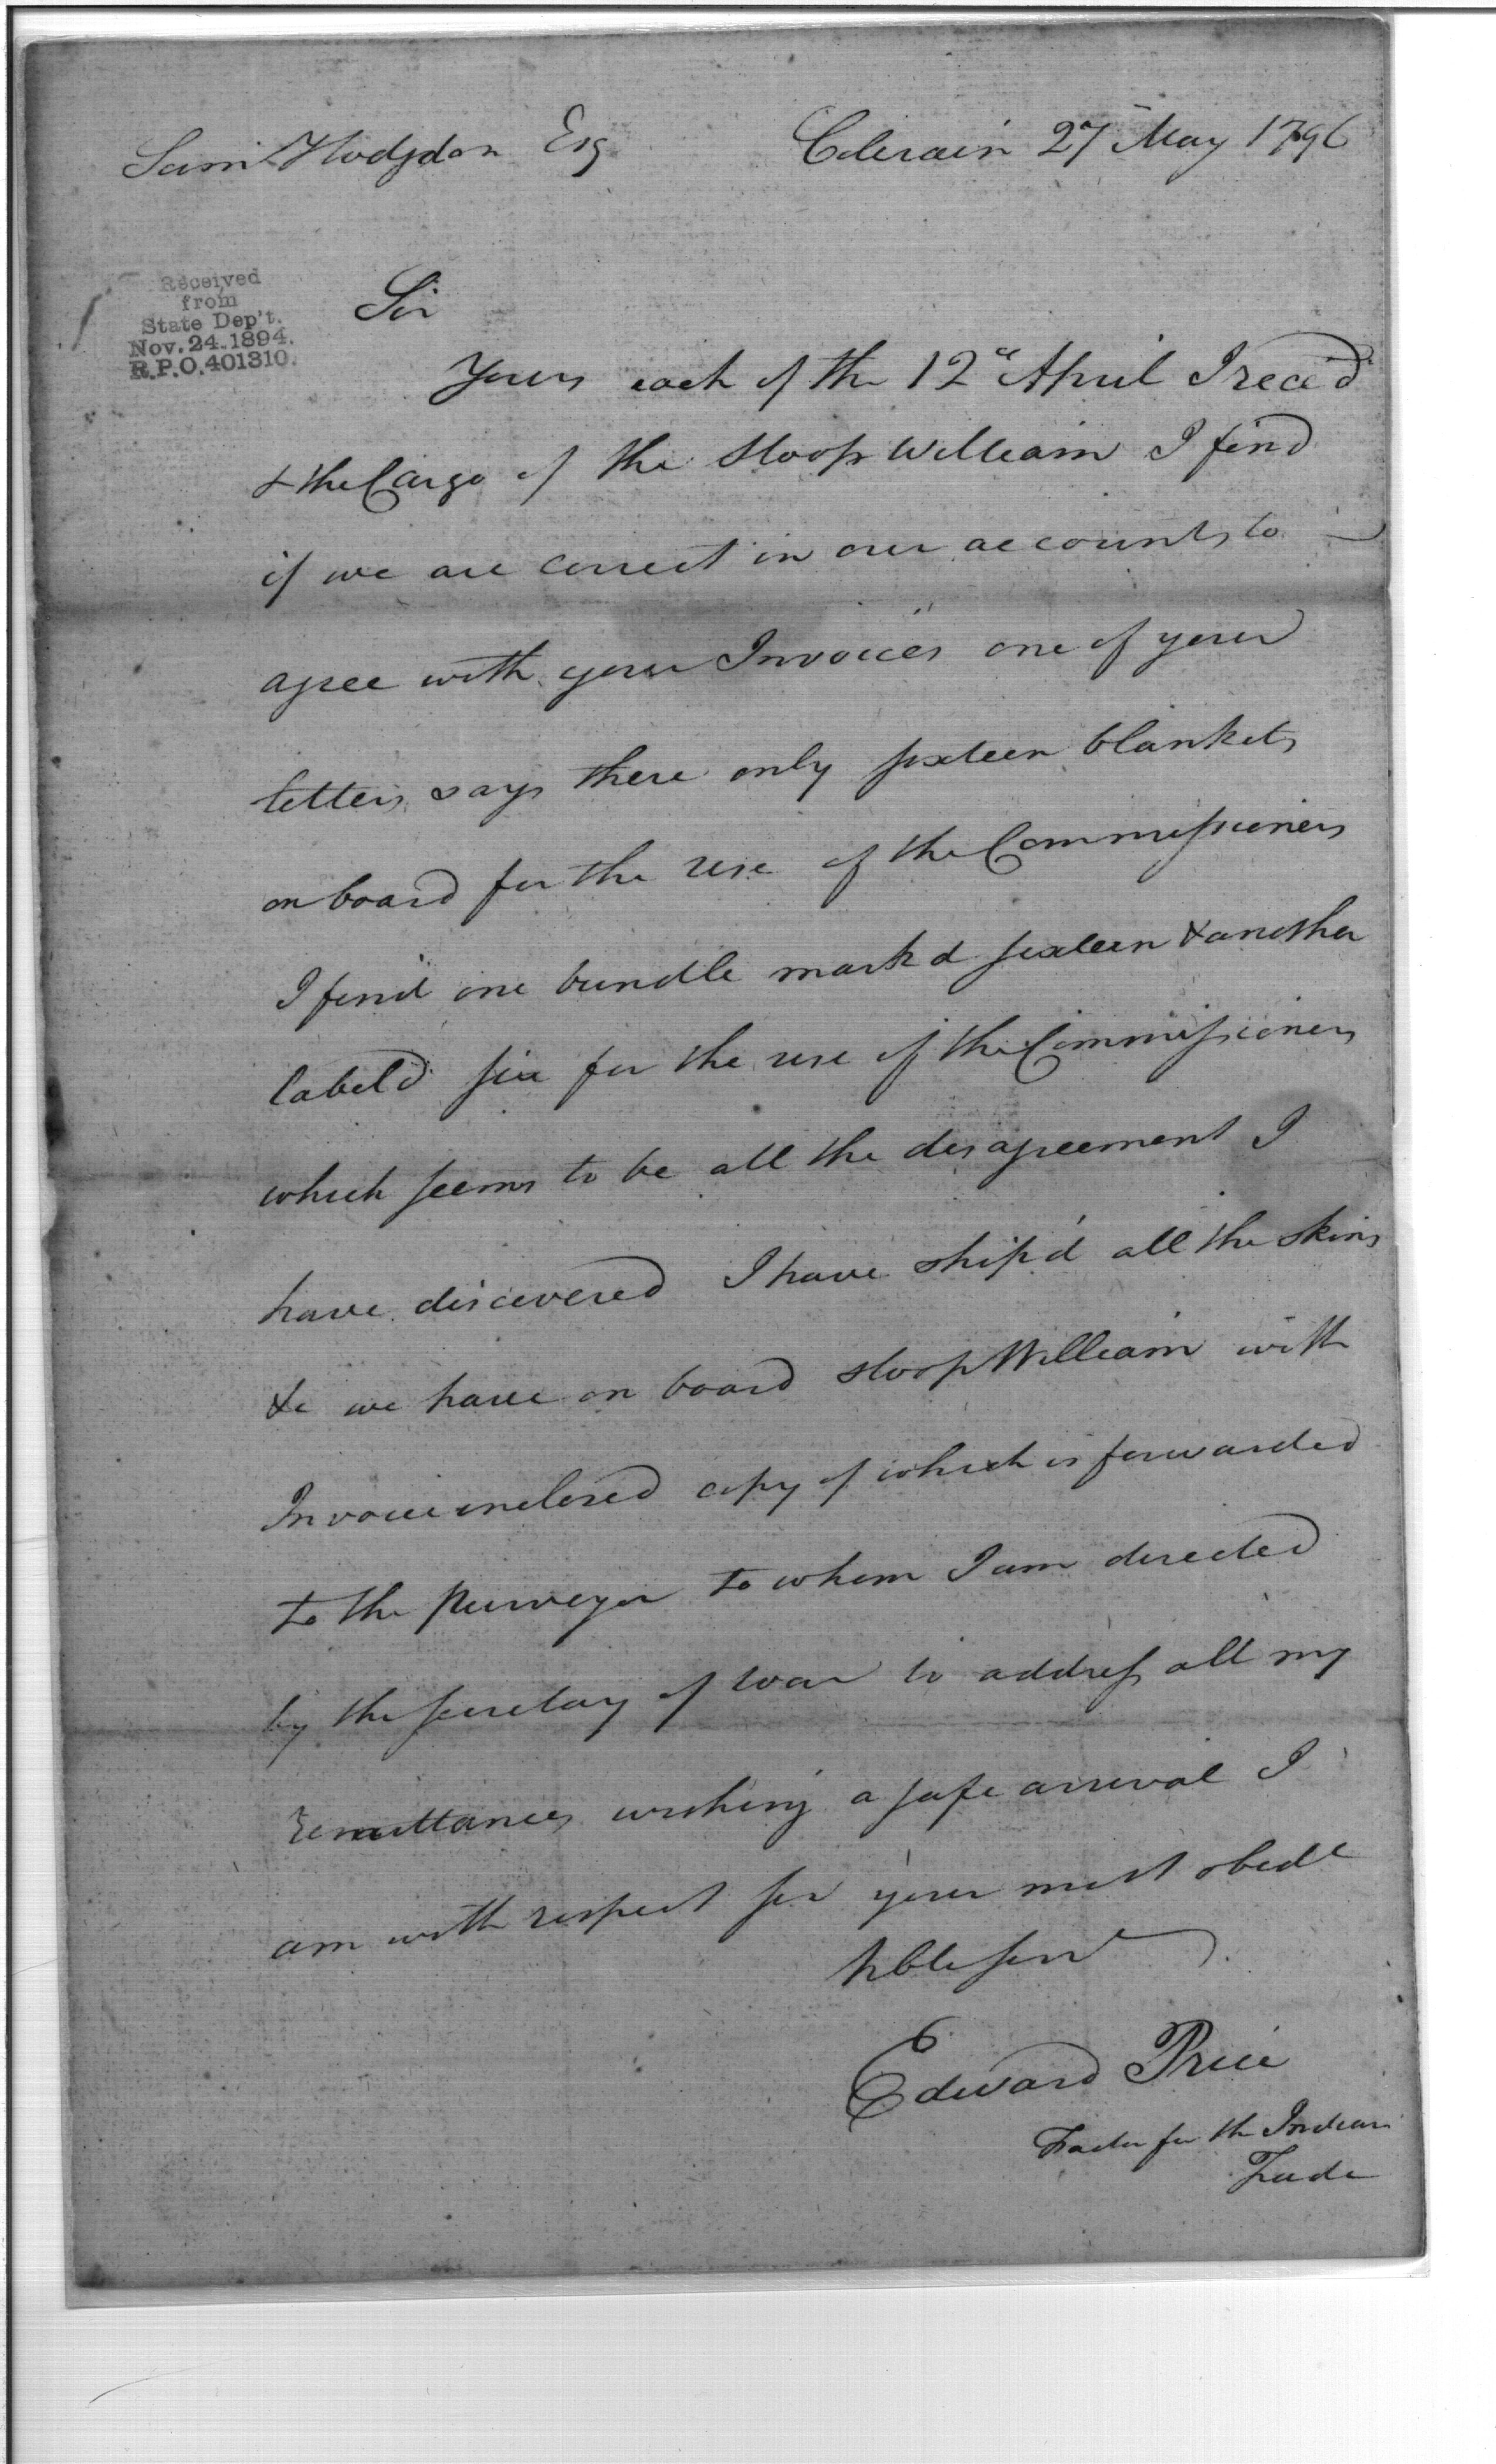 Saml Hodgdon Esq Colerain 27 May 1796
Received
from
State Dep't.
Nov. 24. 1894.
R.P.O. 401310.
Sir
Yours each of the 12th April I rece'd
& the Cargo of the Sloop William I find
if we are correct in our accounts to
agree with your Invoices one of your
letters says there only sixteen blankets
on board for the use of the Commissioners
I find one bundle markd sixteen & another
labeld six for the use of the Commissioners
which seems to be all the disagreement I
have discovered I have ship'd all the skins
&c we have on board sloop William with
Invoice inclosed copy of which is forwarded
to the purveyor to whom I am directed
by the secretary of war to address all my
remittances wishing a safe arrival I
am with respect sir your most obedt
hble servt
Edward Price
Factor for the Indian
Trade